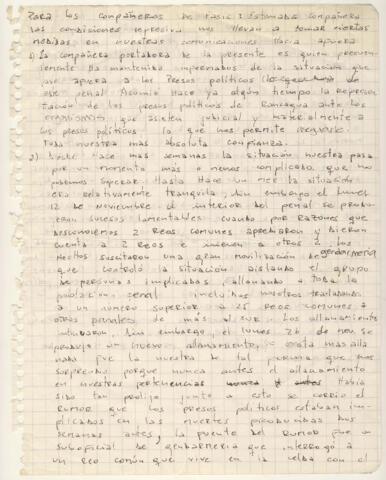 Para los compañeros de Fasic: Estimada compañera
Las condiciones represiva nos llevan a tomar ciertas
medidas en nuestras comunicaciones hacia afuera
1) La compañera portadora de la presente es quien
mente ha mantenido informados de la situación que
que afecta a los Presos políticos
ese penal Asumió hace ya algún tiempo la represen
tación de los presos políticos de Rancagua ante los
organismos que asisten judicial y materialmente a
los presos políticos lo que nos permite
toda nuestra más absoluta confianza.
2) Desde hace más semanas la situación nuestra pasa
por un momento más o menos complicado que no
podemos superar. Hasta hace un mes la situación
era relativamente tranquila, sin embargo el lunes
12 de Noviembre al interior del penal se produ
cerón sucesos lamentables cuando por razones que
desconocemos 2 Reos comunes apredaron y dieron
cuenta a 2 Reos e hirieron a otros 2. Los
hechos suscitaron una gran movilización de gendarmería
que controló la situación aislando el grupo
de personas implicadas, allanando a toda la
población penal incluidos nosotros trasladando
a un número superior a 25 reos comunes a
otros penales de más al sur. Los allanamientos
continuaron. Sin embargo, el lunes 26 de Nov. se
produjo un nuevo allanamiento, se
nado fue la nuestra de tal forma que nos
sorprendió porque nunca antes el allanamiento
en nuestras pertenencias nunca antes había
sido tan prolijo junto a esto se corrió el
rumor que los presos políticos estaban im
plicados en las muertes producidas dos
semanas antes, la fuente del rumor fue un
suboficial de gendarmería que interrogó a
un reo común que vive en la celda con el